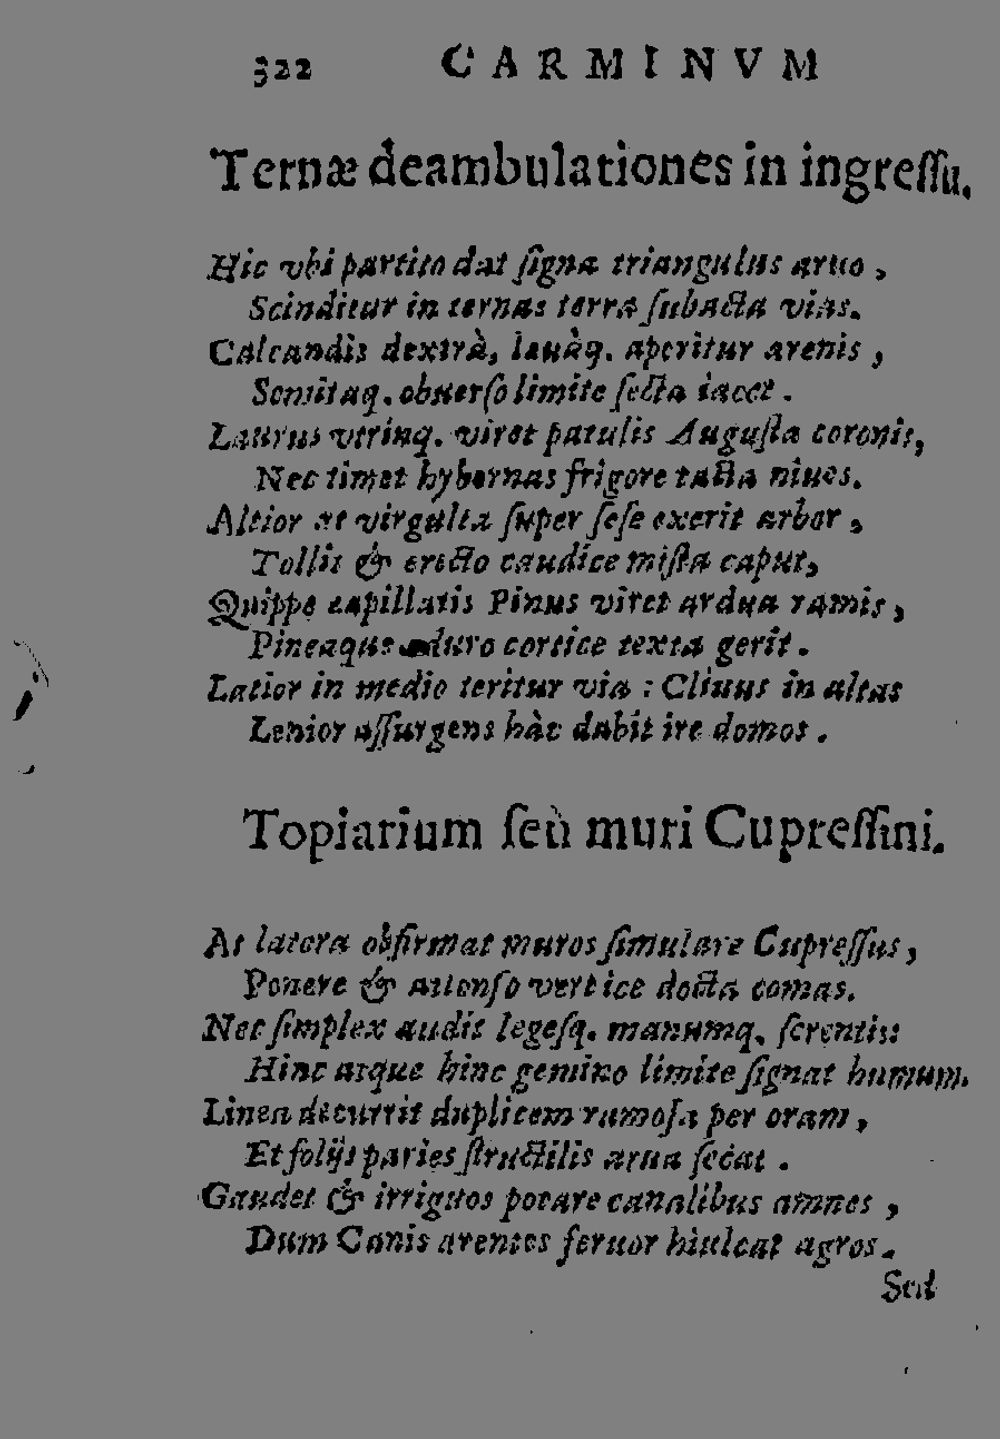 322 CARMINVM
Ternæ deambulationes in ingreſſu.
Hic vbi partito dat ſigna triangulus aruo,
Scinditur in ternas terra ſubacta vias.
Calcandis dextrà, leuàq. aperitur arenis,
Semitaq. obuerſo limite ſecta iacet.
Laurus vtrinq. viret patulis Auguſta coronis,
Nec timet hybernas frigore tacta niues.
Altior at virgulta ſuper ſeſe exerit arbor,
Tollit & erecto caudice miſta caput,
Quippe capillatis Pinus viret ardua ramis,
Pineaque duro cortice texta gerit.
Latior in medio teritur via : Cliuus in altas
Lenior aſſurgens hàc dabit ire domos.
Topiarium ſeù muri Cupreſſini.
At latera obfirmat muros ſimulare Cupreſſus,
Ponere & attonſo vertice docta comas.
Nec ſimplex audit legeſq. manumq. ſerentis:
Hinc atque hinc gemino limite ſignat humum.
Linea decurrit duplicem ramoſa per oram,
Et folijs paries ſtructilis arua ſecat.
Gaudet & irriguos potare canalibus amnes,
Dum Canis arentes feruor hiulcat agros.
Sed